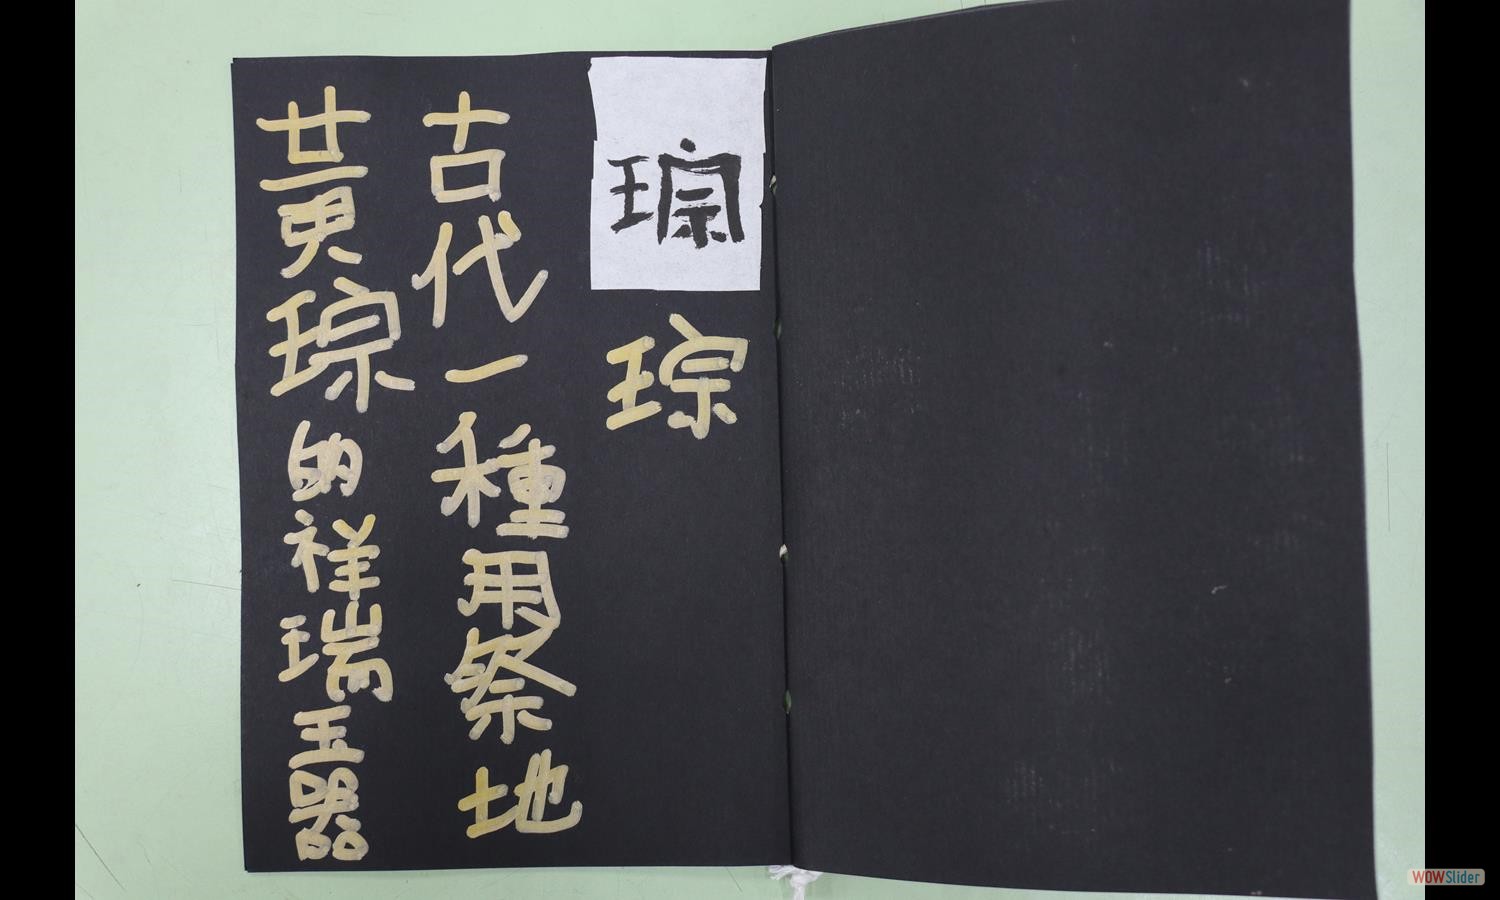 琮
琮
古代一種用祭地
黃琮的祥瑞玉器
WOWSlider